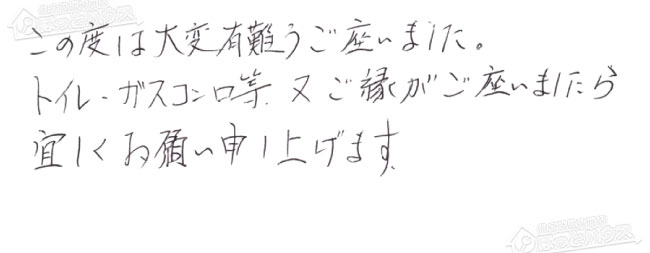 この度は大変有難うご座いました。
トイレ・ガスコンロ等、又ご縁がご座いましたら
宜しくお願い申し上げます。